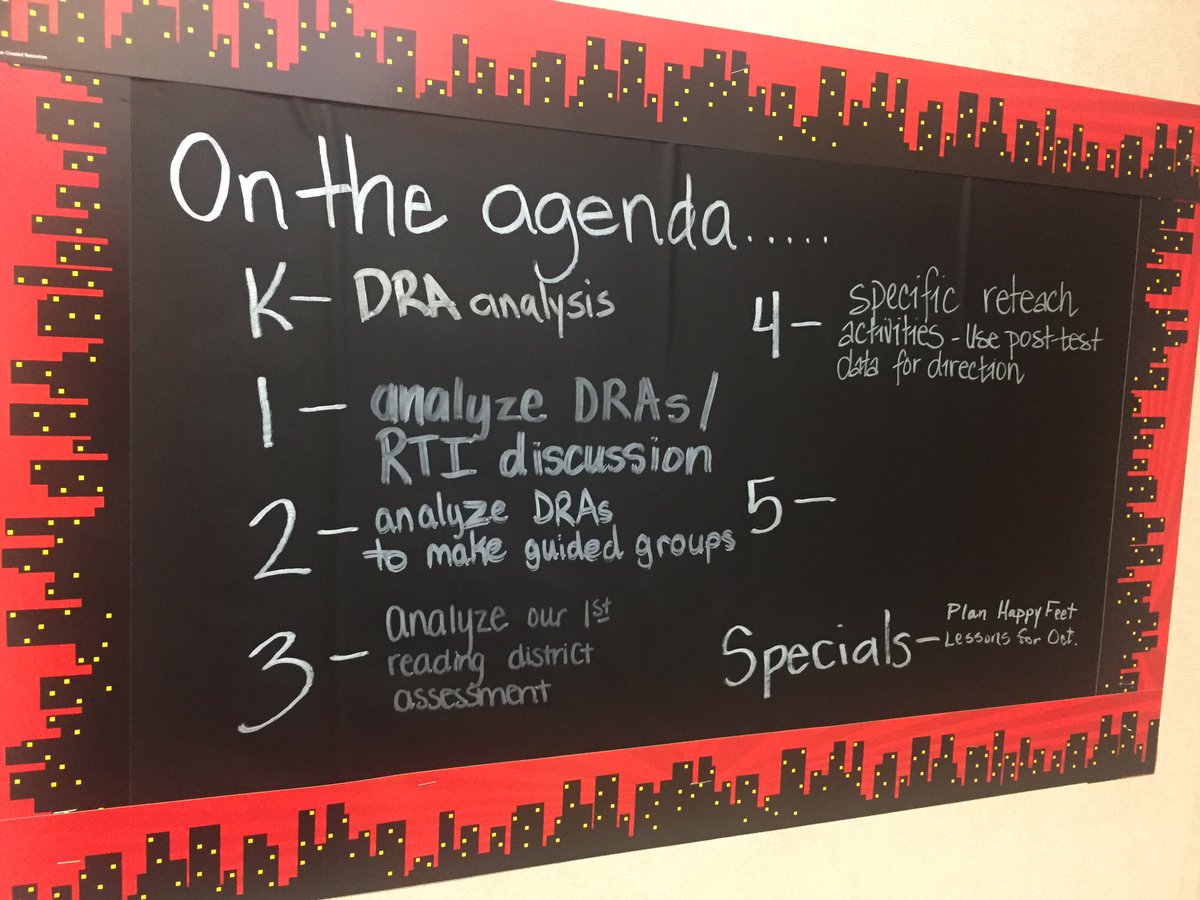 On the agenda.....
K- DRA analysis
1- analyze DRAs/
RTI discussion
2- analyze DRAs
to make guided groups
3- Analyze our 1st
reading district
assessment
4- specific reteach
activities - Use post-test
data for direction
5-
Specials- Plan Happy Feet
Lessons for Oct.